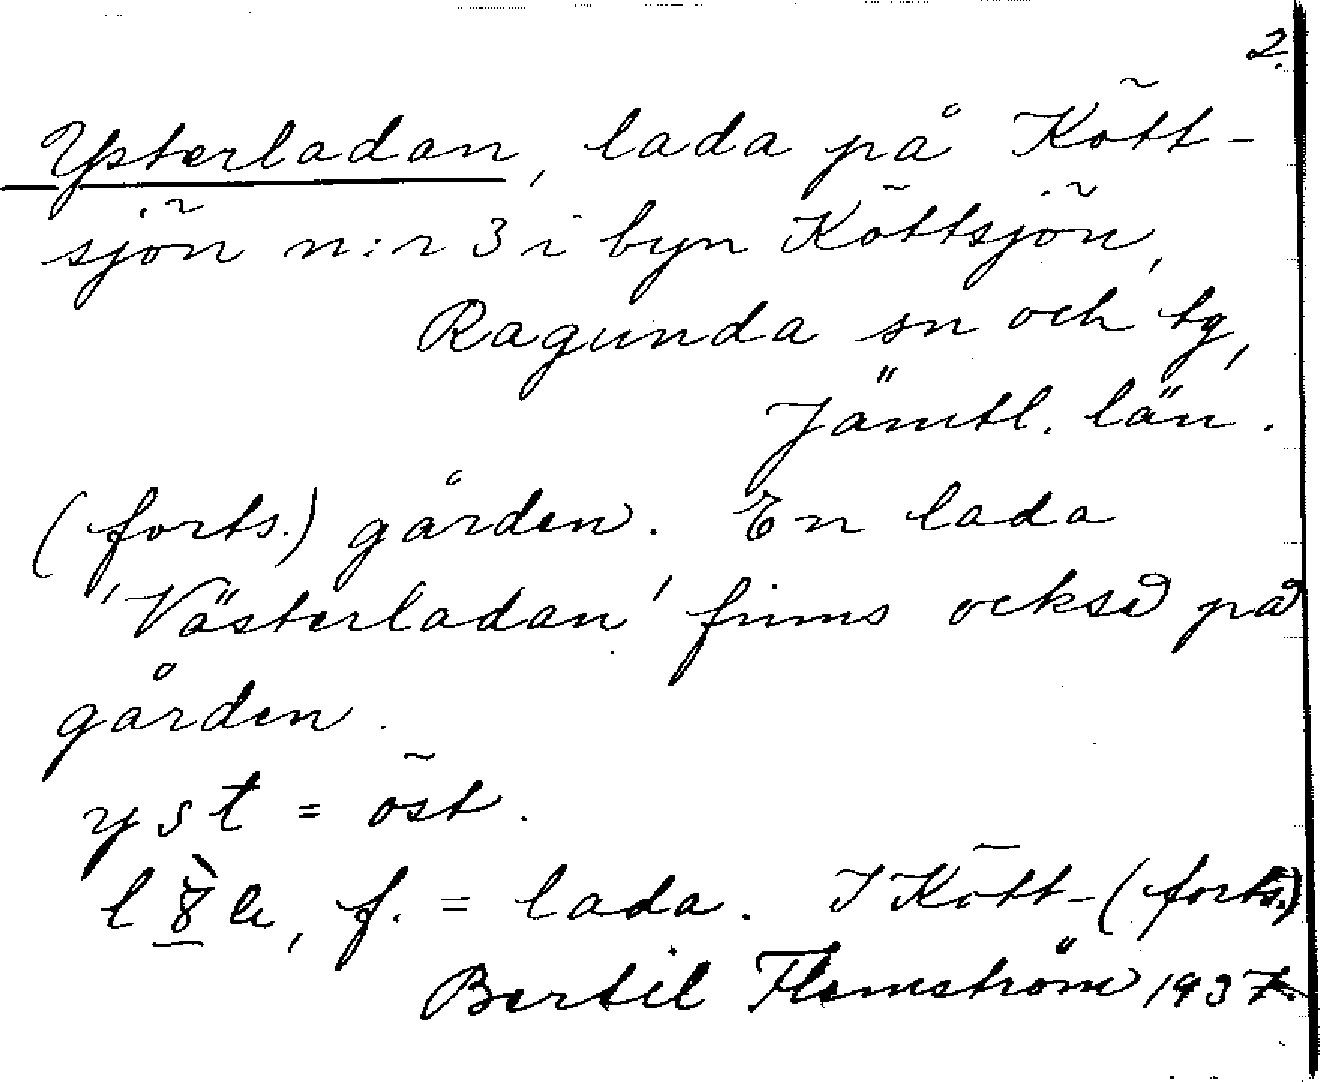 2.
Ysterladan, lada på Kött-
sjön n:r 3 i byn Köttsjön,
Ragunda sn och tg,
Jämtl. län.
(forts.) gården. En lada
'Västerladan' finns också på
gården.
yst = öst.
f. = lada. I Kött- (forts.)
Bertil Flemström 1937.